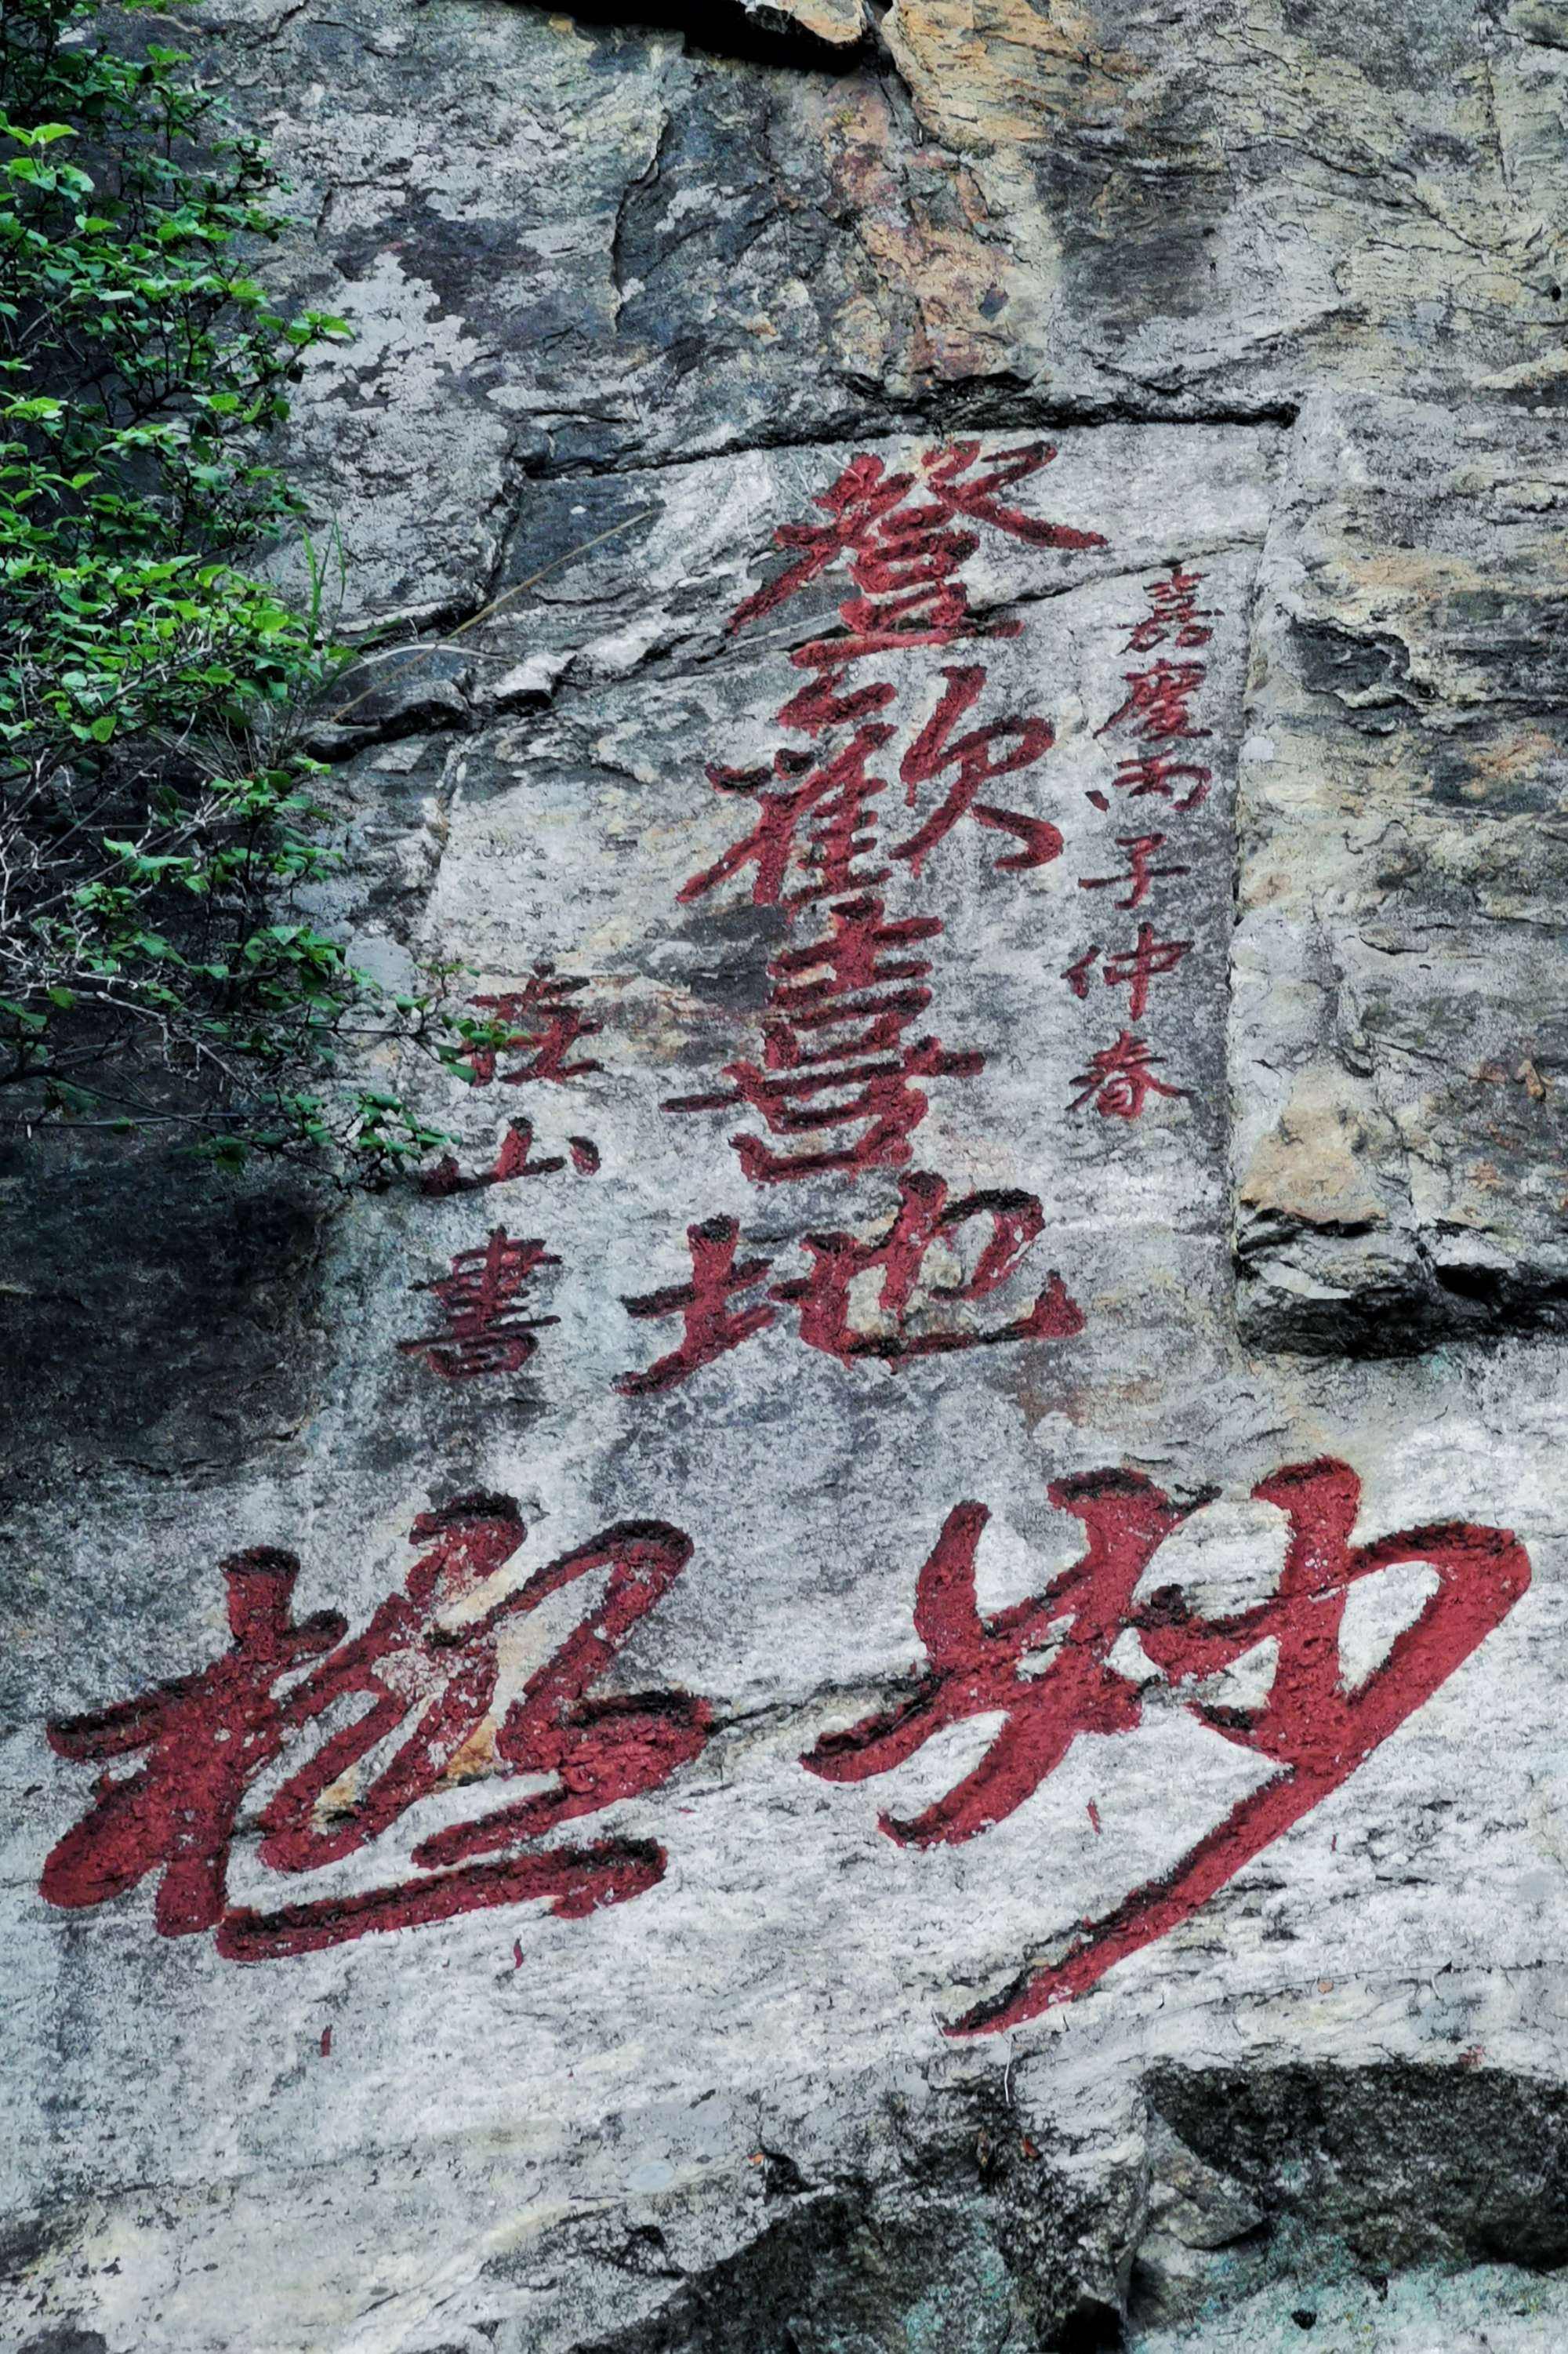 嘉慶丙子仲春
登歡喜地
山書
妙極